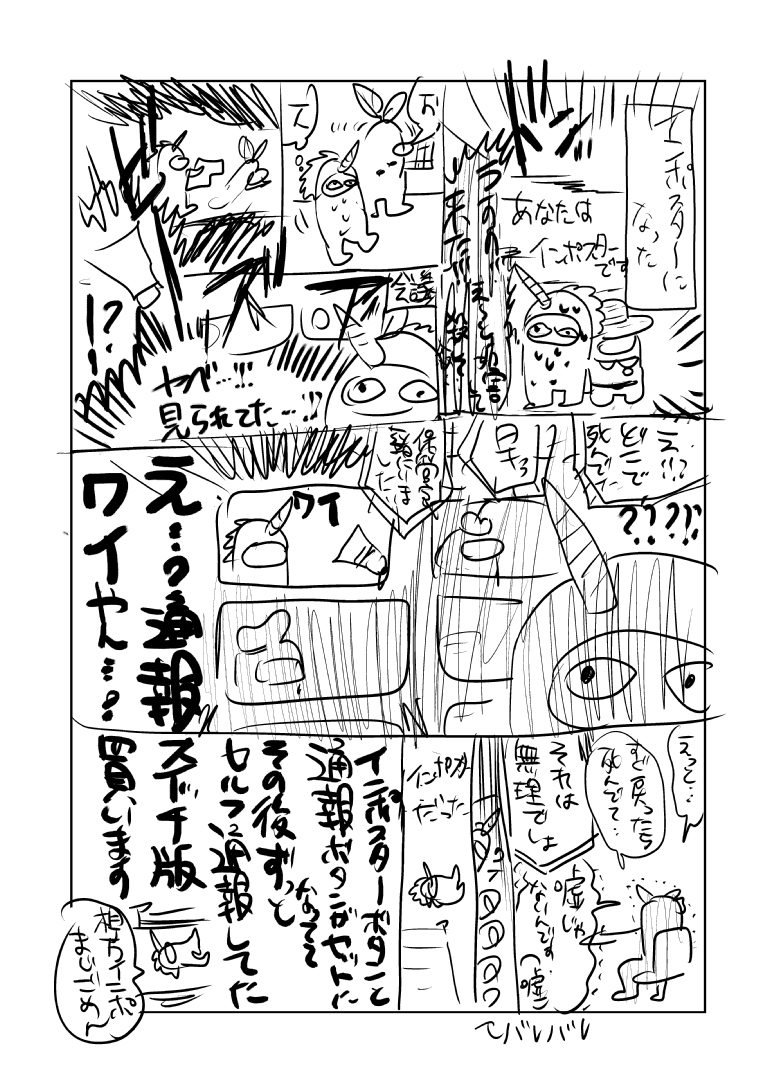 インポスターに
なった
あなたは
インポスターです
うおお
来た!!
お
え
会議
ヤバ…!!!
見られてた…!!
!?
え!?
どこで
死んでた
早ろ
保管室で
一緒にいま
した
??!?!
ワイ
え…?通報
ワイやん…?
えっと…
すぐ戻ったら
死んでて…
それは
無理でしょ
嘘じゃ
ないんです
(嘘)
バレバレで
インポスター
だった
インポスターボタンと
通報ボタンがセットに
なってて
その後ずっと
セルフ通報してた
スイッチ版
買います
相方インポ
まじごめん